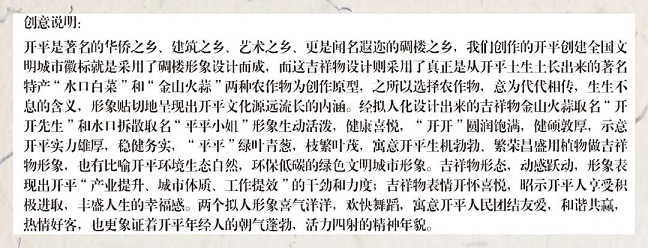 创意说明：
开平是著名的华侨之乡、建筑之乡、艺术之乡、更是闻名遐迩的碉楼之乡，我们创作的开平创建全国文
明城市徽标就是采用了碉楼形象设计而成，而这吉祥物设计则采用了真正是从开平土生土长出来的著名
特产“水口白菜”和“金山火蒜”两种农作物为创作原型，之所以选择农作物，意为代代相传，生生不
息的含义，形象贴切地呈现出开平文化源远流长的内涵。经拟人化设计出来的吉祥物金山火蒜取名“开
开先生”和水口拆散取名“平平小姐”形象生动活泼，健康喜悦，“开开”圆润饱满，健硕敦厚，示意
开平实力雄厚，稳健务实，“平平”绿叶青葱，枝繁叶茂，寓意开平生机勃勃、繁荣昌盛用植物做吉祥
物形象，也有比喻开平环境生态自然，环保低碳的绿色文明城市形象。吉祥物形态，动感跃动，形象表
现出开平“产业提升、城市体质、工作提效”的干劲和力度；吉祥物表情开怀喜悦，昭示开平人享受积
极进取，丰盛人生的幸福感。两个拟人形象喜气洋洋，欢快舞蹈，寓意开平人民团结友爱，和谐共赢，
热情好客，也更象证着开平年经人的朝气蓬勃，活力四射的精神年貌。